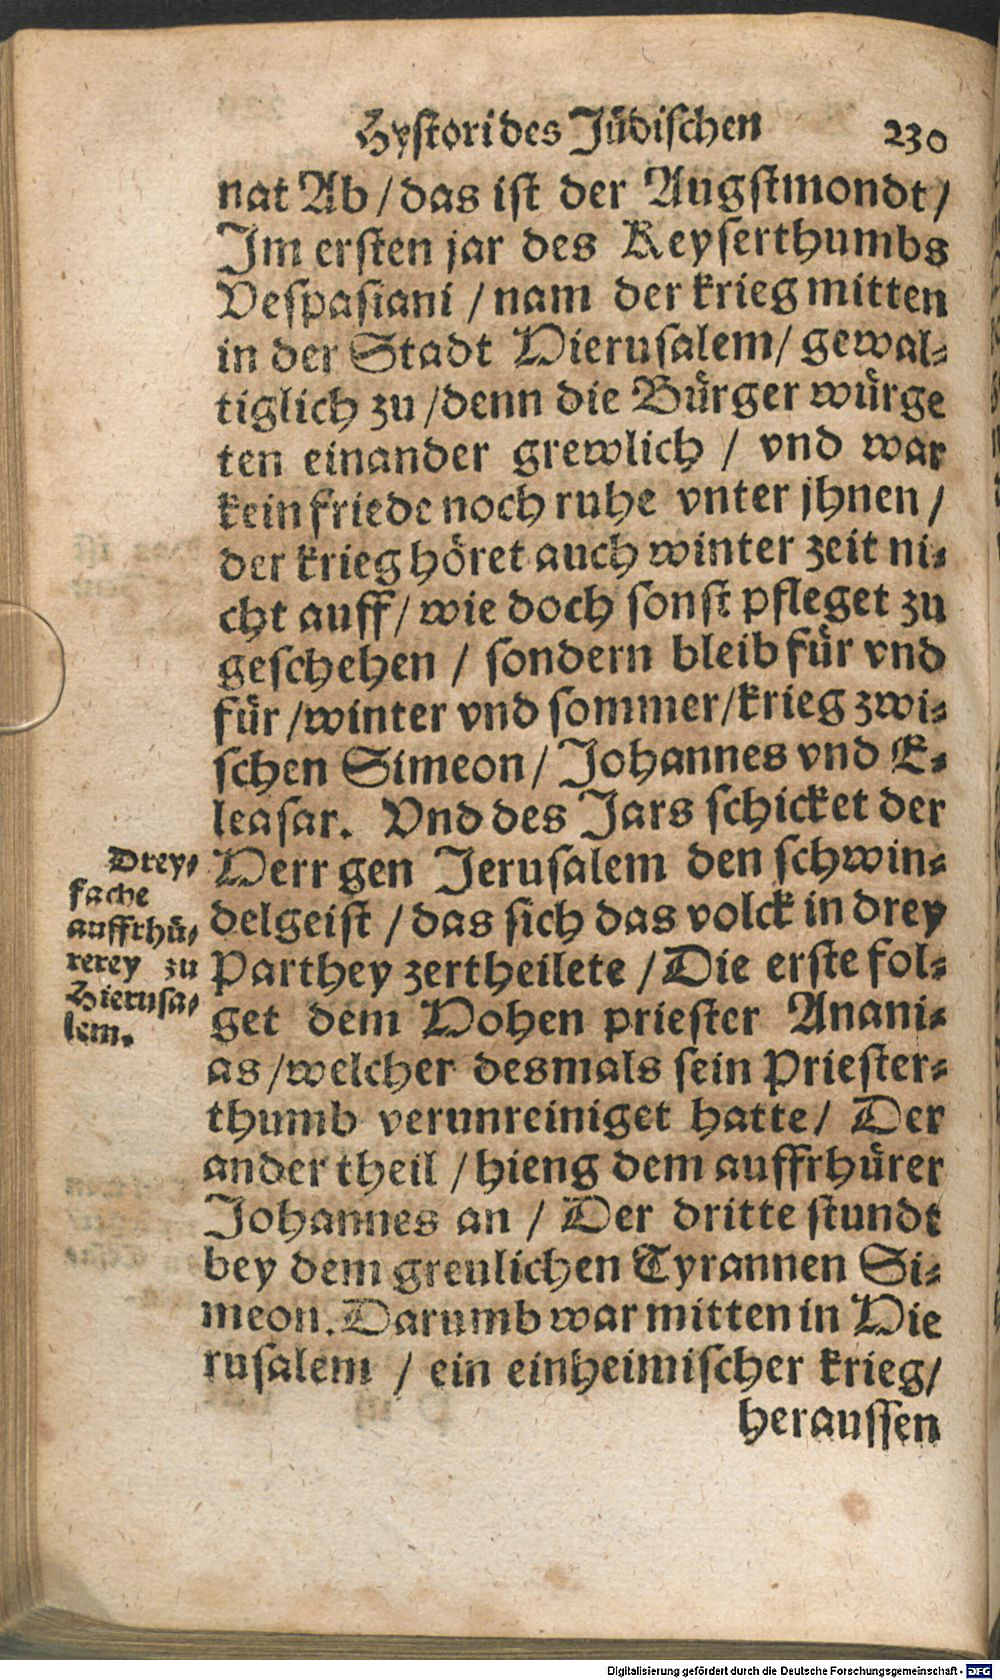 Hystori des Jüdischen 230
nat Ab / das ist der Augstmondt /
Im ersten jar des Keyserthumbs
Vespasiani / nam der krieg mitten
in der Stadt Hierusalem / gewal⸗
tiglich zu / denn die Bürger würge
ten einander grewlich / vnd war
kein friede noch ruhe vnter jhnen /
der krieg höret auch winter zeit ni⸗
cht auff / wie doch sonst pfleget zu
geschehen / sondern bleib für vnd
für / winter vnd sommer / krieg zwi⸗
schen Simeon / Johannes vnd E⸗
leasar. Vnd des Jars schicket der
Herr gen Jerusalem den schwin⸗
delgeist / das sich das volck in drey
Parthey zertheilete / Die erste fol⸗
get dem Hohen priester Anani⸗
as / welcher desmals sein Priester⸗
thumb verunreiniget hatte / Der
ander theil / hieng dem auffrhürer
Johannes an / Der dritte stundt
bey dem greulichen Tyrannen Si⸗
meon. Darumb war mitten in Hie
rusalem / ein einheimischer krieg /
heraussen
Drey⸗
fache
auffrhü⸗
rerey zu
Hierusa⸗
lem.
Digitalisierung gefördert durch die Deutsche Forschungsgemeinschaft - DFG